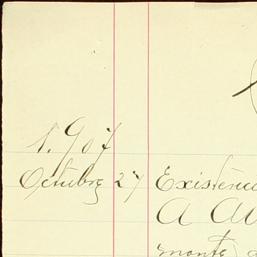 1.907
Octubre 27 Existenci
A
monte